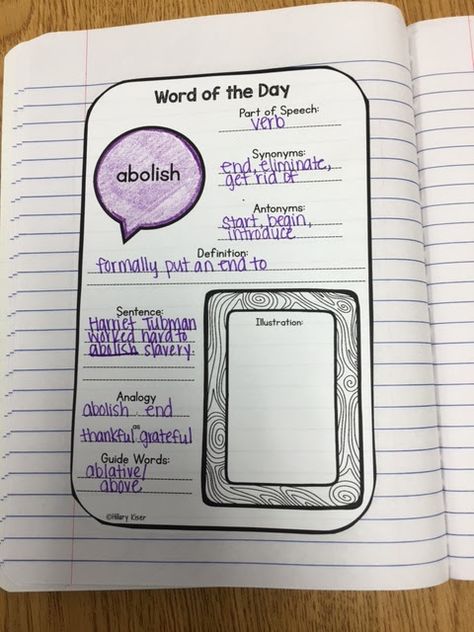 Word of the Day
Part of Speech:
verb
abolish
Synonyms:
end, eliminate,
get rid of
Antonyms:
start, begin,
introduce
Definition:
formally put an end to
Sentence:
Harriet Tubman
worked hard to
abolish slavery.
Illustration:
Analogy
abolish end
as
thankful grateful
Guide Words:
ablative/
above
©Hillary Kiser